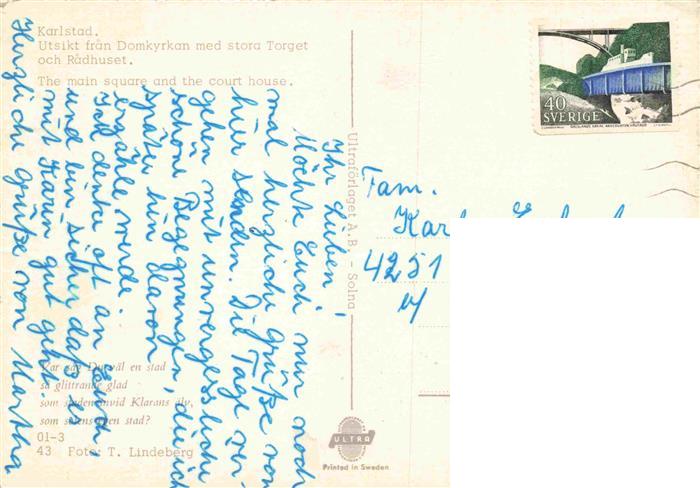 Karlstad.
Utsikt från Domkyrkan med stora Torget
och Rådhuset.
The main square and the court house.
Ihr Lieben!
Möchte Euch nur noch
mal herzliche Grüße von
hier senden. Die Tage ver-
gehen mit unvergessliche
schöne Begegnungen, die ich
später hin davon
erzähle werde.
Ich denke oft an Euch
und bin sicher, daß es
mit Karin gut geht.
Herzliche Grüße von Martha
såg Du väl en stad
så glittrande glad
som staden invid Klarans älv,
som solens egen stad?
01-3
43 Foto: T. Lindeberg
Ultraförlaget A.B. - Solna
ULTRA
Printed in Sweden
40
SVERIGE
DALSLANDS KANAL AKVEDUKTEN HÅVERUD
Fam.
4251